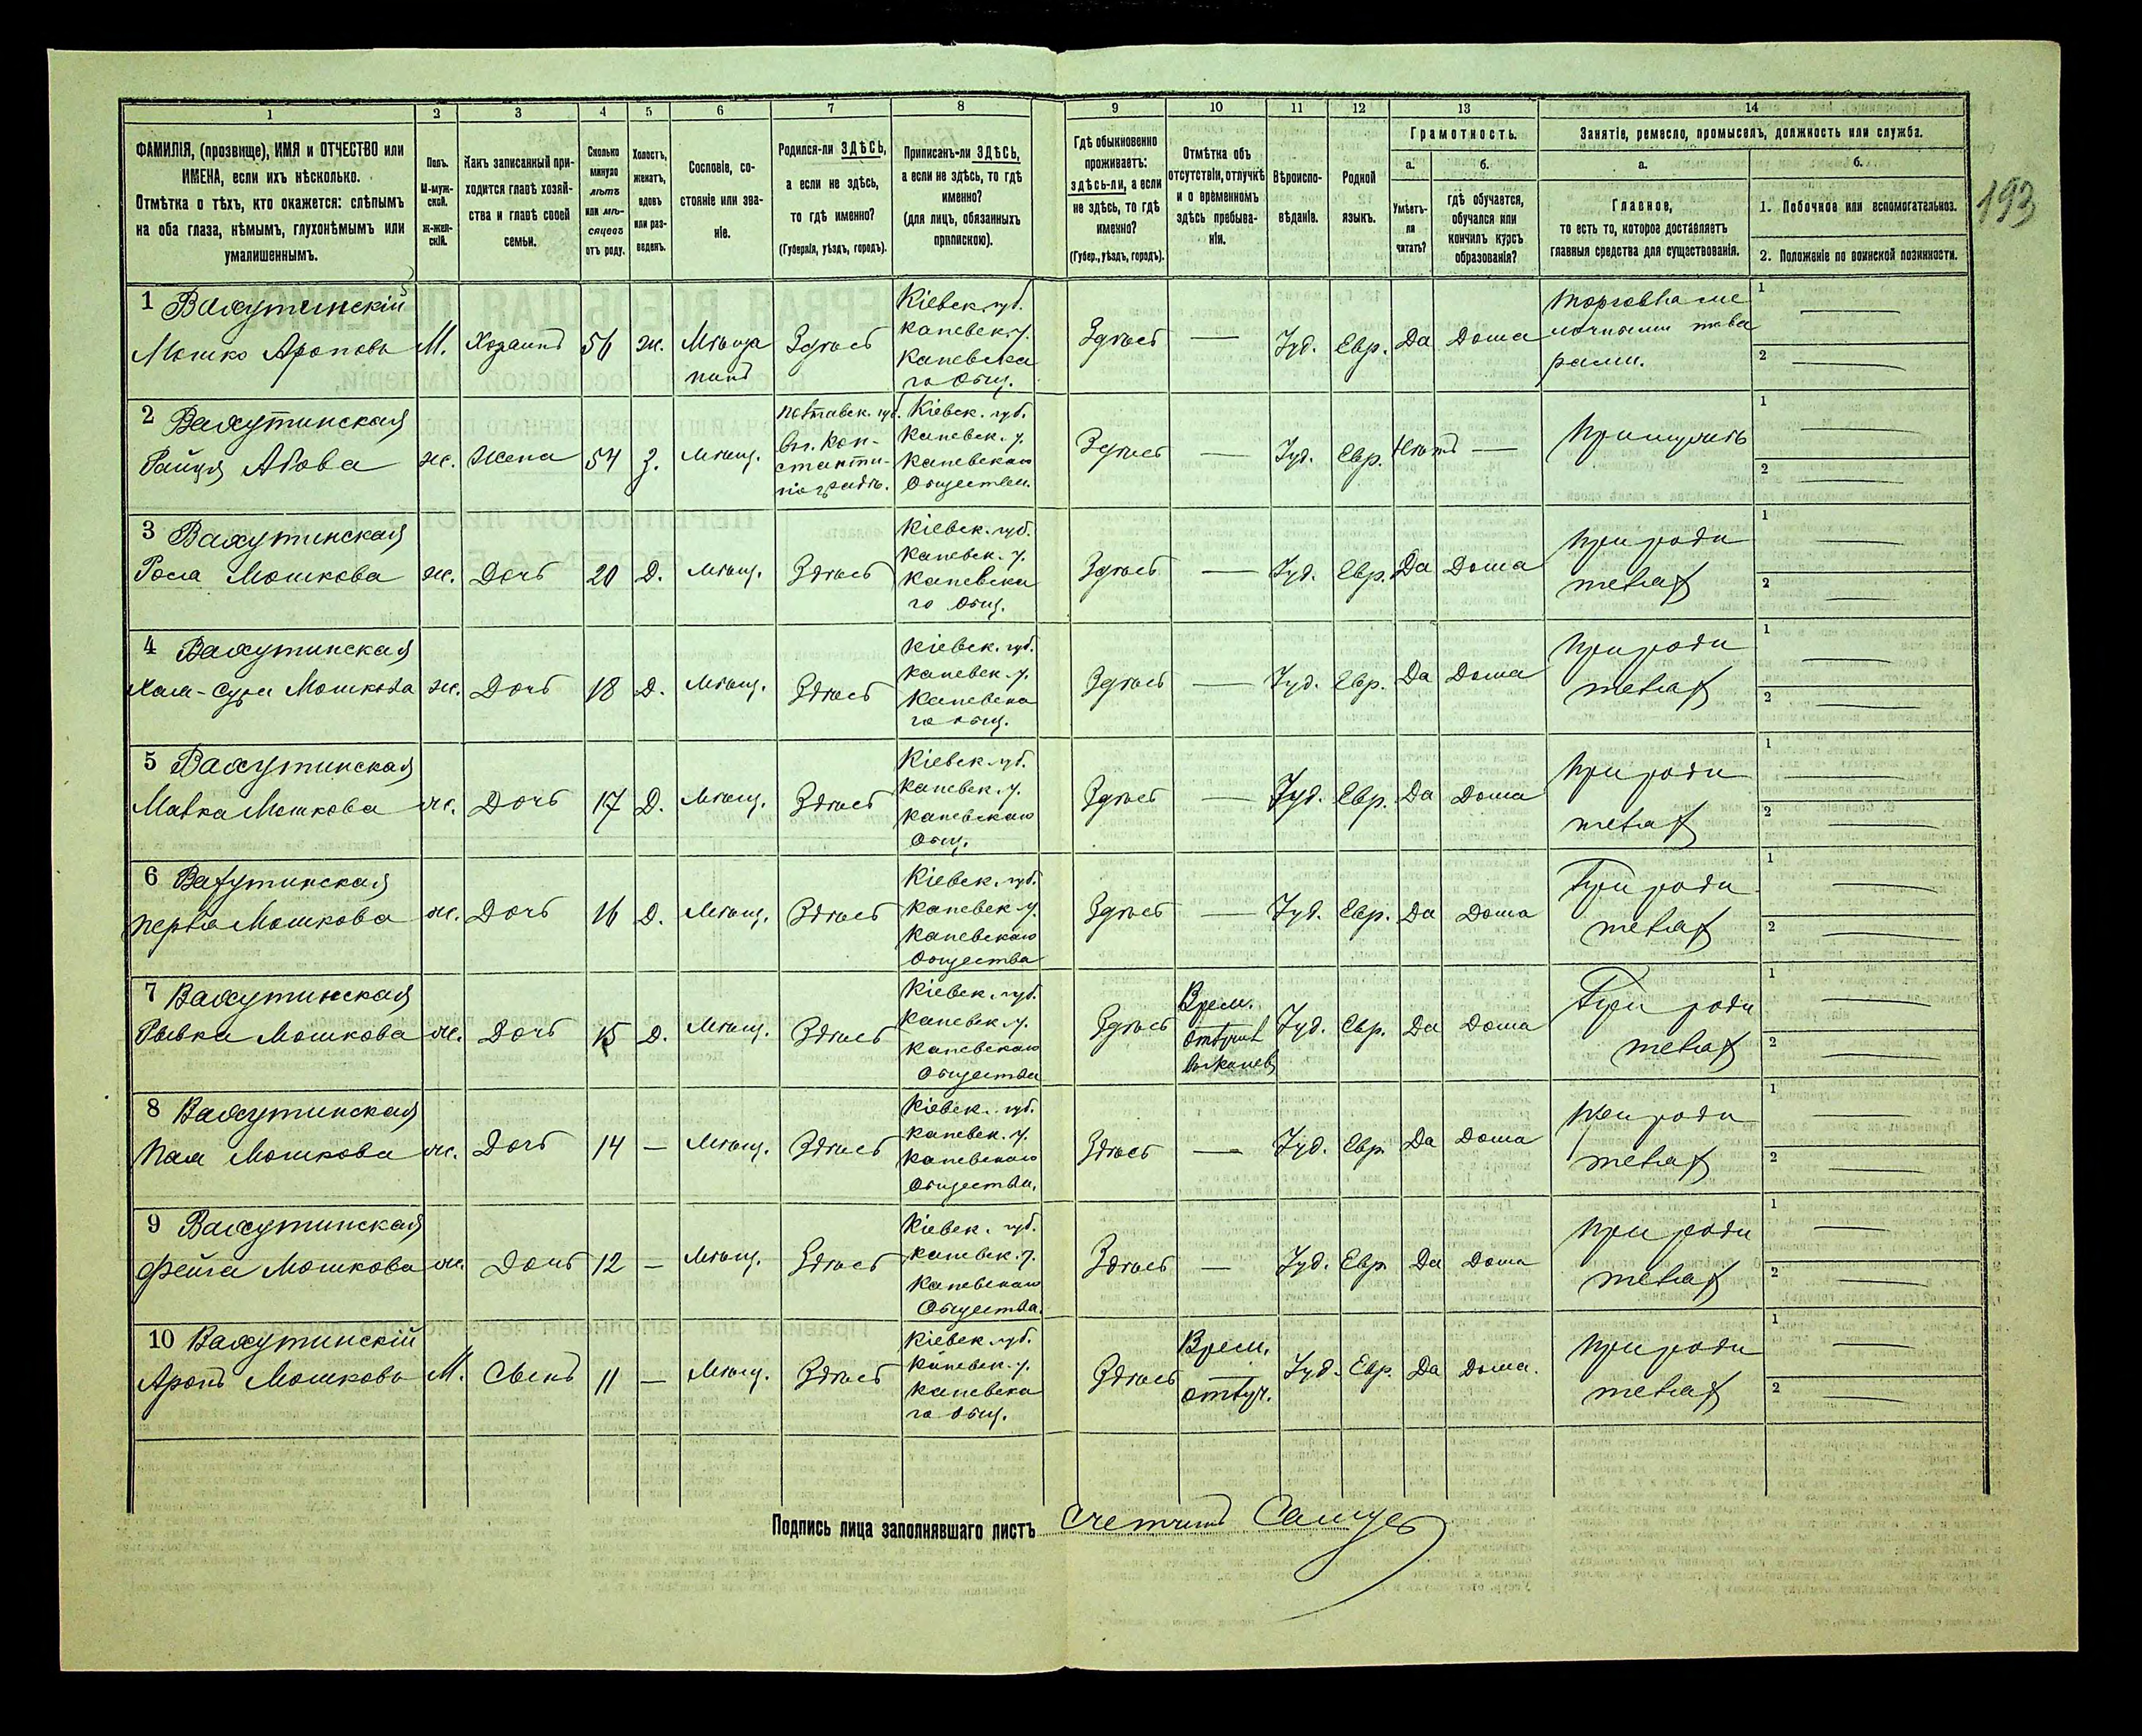 193
1 2 3 4 5 6 7 8 9 10 11 12 13 14
ФАМИЛІЯ, (прозвище), ИМЯ и ОТЧЕСТВО или
ИМЕНА, если ихъ нѣсколько.
Отмѣтка о тѣхъ, кто окажется: слѣпымъ
на оба глаза, нѣмымъ, глухонѣмымъ или
умалишеннымъ.
Полъ.
М-муж-
ской.
Ж-жен-
скій.
Какъ записанный при-
ходится главѣ хозяй-
ства и главѣ своей
семьи.
Сколько
минуло
лѣтъ
или мѣ-
сяцевъ
отъ роду.
Холостъ,
женатъ,
вдовъ
или раз-
веденъ.
Сословіе, со-
стояніе или зва-
ніе.
Родился-ли ЗДѢСЬ,
а если не здѣсь,
то гдѣ именно?
(Губернія, уѣздъ, городъ).
Приписанъ-ли ЗДѢСЬ,
а если не здѣсь, то гдѣ
именно?
(для лицъ, обязанныхъ
припискою).
Гдѣ обыкновенно
проживаетъ:
здѣсь-ли, а если
не здѣсь, то гдѣ
именно?
(Губер., уѣздъ, городъ).
Отмѣтка объ
отсутствіи, отлучкѣ
и о временномъ
здѣсь пребыва-
ніи.
Вѣроиспо-
вѣданіе.
Родной
языкъ.
Грамотность.
а.
Умѣетъ-
ли
читать?
б.
гдѣ обучается,
обучался или
кончилъ курсъ
образованія?
Занятіе, ремесло, промыселъ, должность или служба.
а.
Главное,
то есть то, которое доставляетъ
главныя средства для существованія.
б.
1. Побочное или вспомогательное.
2. Положеніе по воинской повинности.
1 Вахутинскій
Мошко Ароновъ
М.
Хозяинъ
56
ж.
Мѣща
нинъ
Здѣсь
Кіевск. губ.
Каневск. у.
Каневска
го Общ.
Здѣсь
—
Іуд.
Евр.
Да
Дома
Торговла ме
лочными това
рами.
1 —
2 —
2 Вахутинская
Ж.
Жена
54
З.
Мѣщ.
Полтавск. губ.
Кон-
станти-
ноградъ.
Кіевск. губ.
Каневск. у.
Каневскаго
Обществ.
Здѣсь
—
Іуд.
Евр.
Нѣтъ
—
При мужѣ
1 —
2 —
3 Вахутинская
Роса Мошкова
Ж.
Дочь
20
Д.
Мѣщ.
Здѣсь
Кіевск. губ.
Каневск. у.
Каневска
го Общ.
Здѣсь
—
Іуд.
Евр.
Да
Дома
При роди
телях
1 —
2 —
4 Вахутинская
Хая-Сура Мошкова
Ж.
Дочь
18
Д.
Мѣщ.
Здѣсь
Кіевск. губ.
Каневск. у.
Каневска
го Общ.
Здѣсь
—
Іуд.
Евр.
Да
Дома
При роди
телях
1 —
2 —
5 Вахутинская
Малка Мошкова
Ж.
Дочь
17
Д.
Мѣщ.
Здѣсь
Кіевск. губ.
Каневск. у.
Каневскаго
Общ.
Здѣсь
—
Іуд.
Евр.
Да
Дома
При роди
телях
1 —
2 —
6 Вахутинская
Перла Мошкова
Ж.
Дочь
16
Д.
Мѣщ.
Здѣсь
Кіевск. губ.
Каневск. у.
Каневскаго
Общества
Здѣсь
—
Іуд.
Евр.
Да
Дома
При роди
телях
1 —
2 —
7 Вахутинская
Рывка Мошкова
Ж.
Дочь
15
Д.
Мѣщ.
Здѣсь
Кіевск. губ.
Каневск. у.
Каневскаго
Общества
Здѣсь
Врем.
Іуд.
Евр.
Да
Дома
При роди
телях
1 —
2 —
8 Вахутинская
Мошкова
Ж.
Дочь
14
—
Мѣщ.
Здѣсь
Кіевск. губ.
Каневск. у.
Каневскаго
Общества.
Здѣсь
—
Іуд.
Евр.
Да
Дома
При роди
телях
1 —
2 —
9 Вахутинская
Фейга Мошкова
Ж.
Дочь
12
—
Мѣщ.
Здѣсь
Кіевск. губ.
Каневск. у.
Каневскаго
Общества.
Здѣсь
—
Іуд.
Евр.
Да
Дома
При роди
телях
1 —
2 —
10 Вахутинскій
Аронъ Мошковъ
М.
Сынъ
11
—
Мѣщ.
Здѣсь
Кіевск. губ.
Каневск. у.
Каневска
го Общ.
Здѣсь
Врем.
отлуч.
Іуд.
Евр.
Да
Дома.
При роди
телях
1 —
2 —
Подпись лица заполнявшаго листъ Счетчикъ